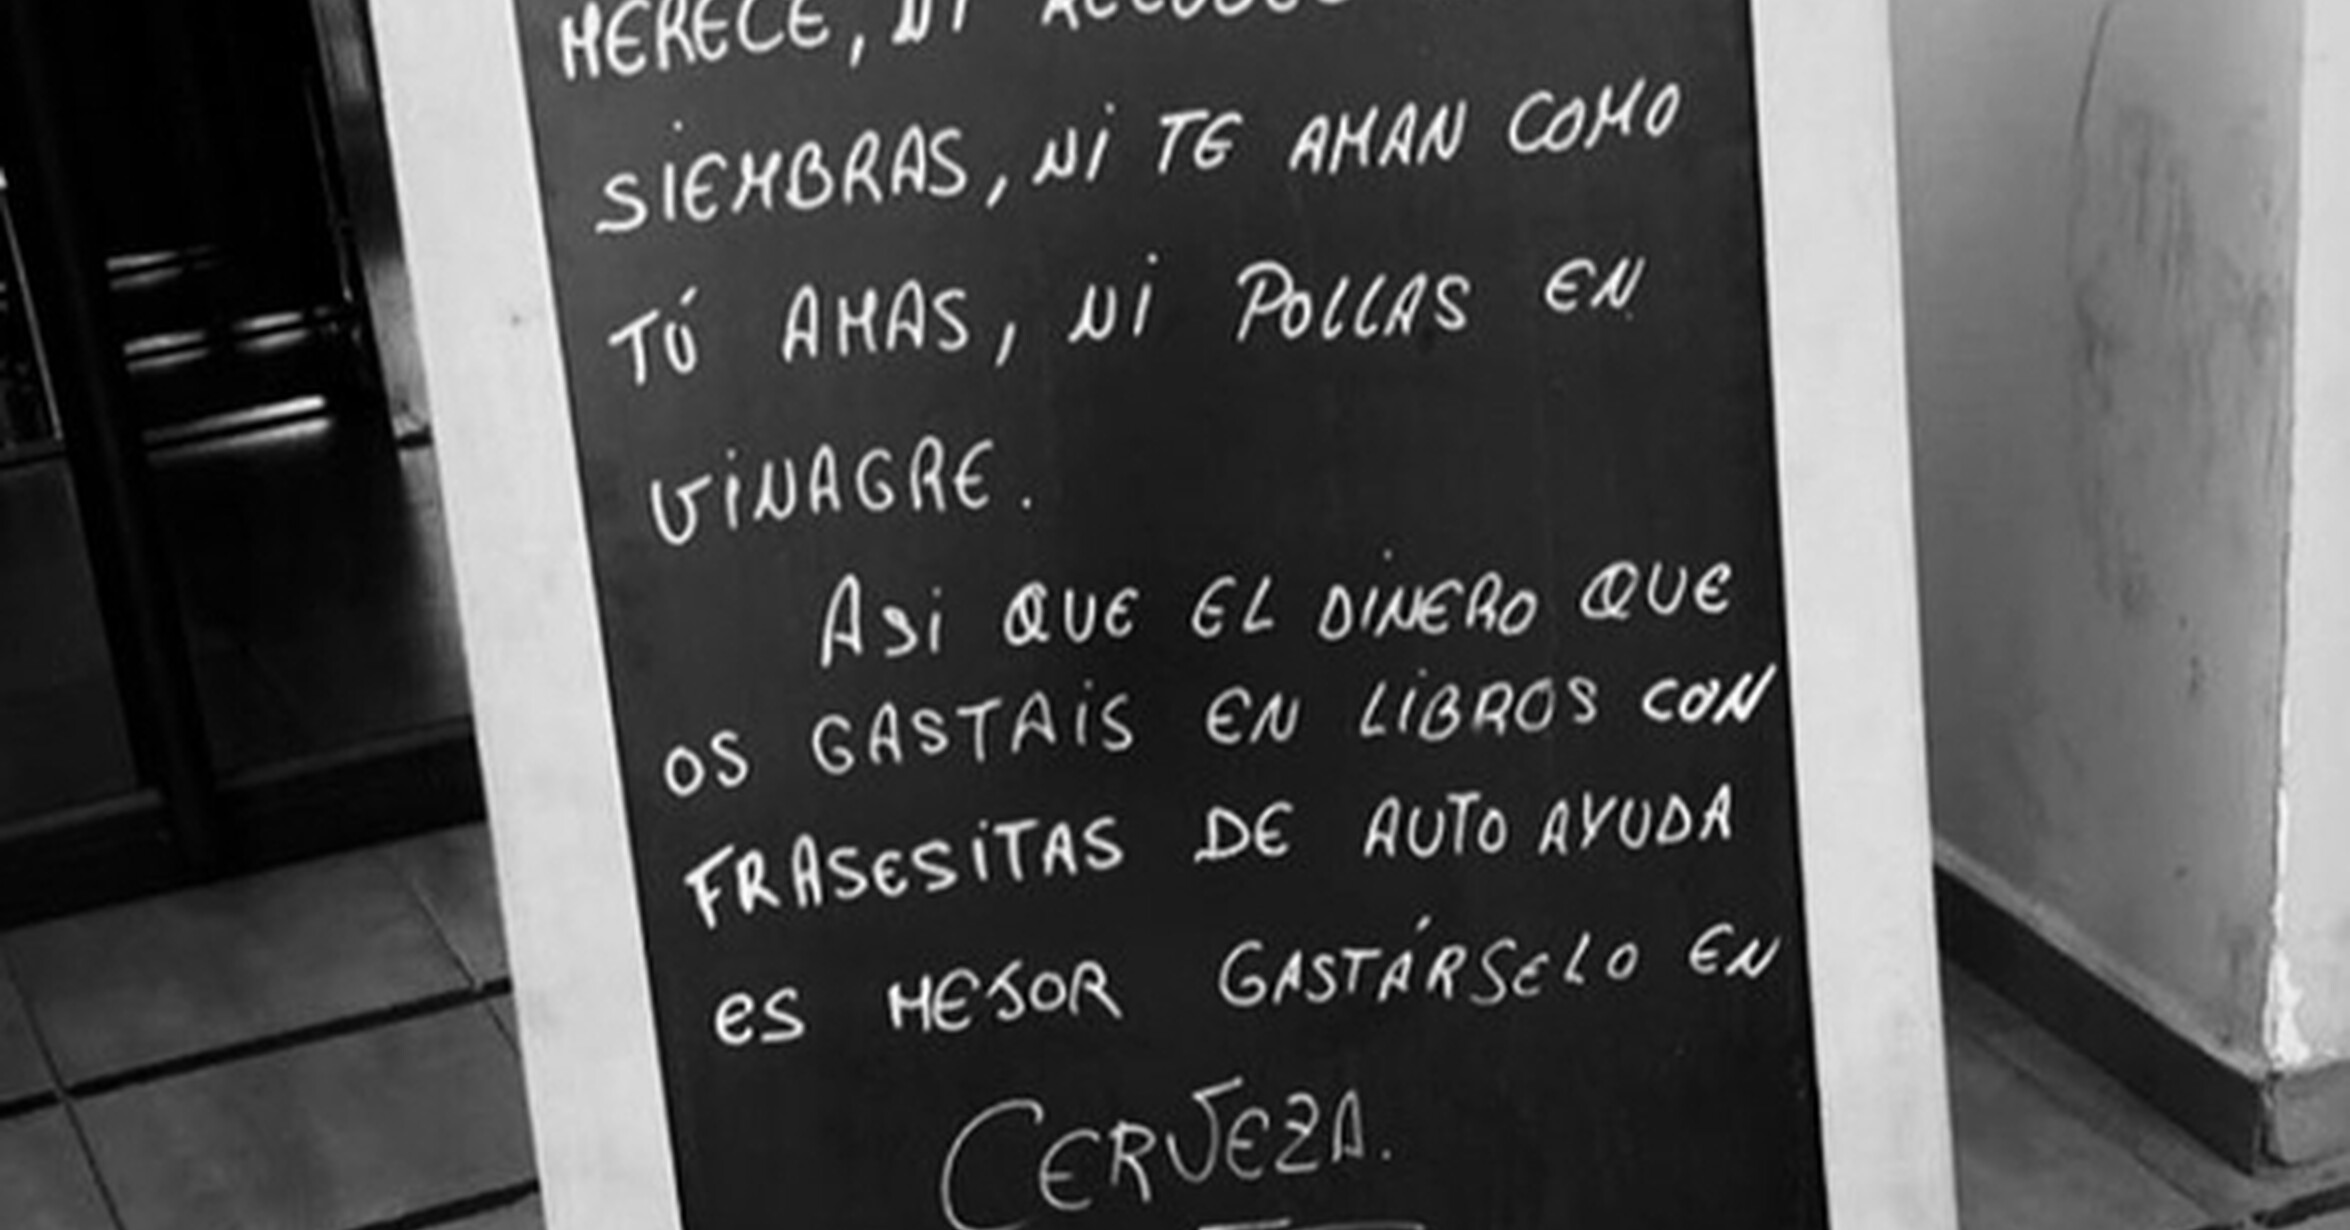 MERECE, NI
SIEMBRAS, NI TE AMAN COMO
TÚ AMAS, NI POLLAS EN
VINAGRE.
ASI QUE EL DINERO QUE
OS GASTAIS EN LIBROS CON
FRASESITAS DE AUTO AYUDA
ES MEJOR GASTÁRSELO EN
CERVEZA.